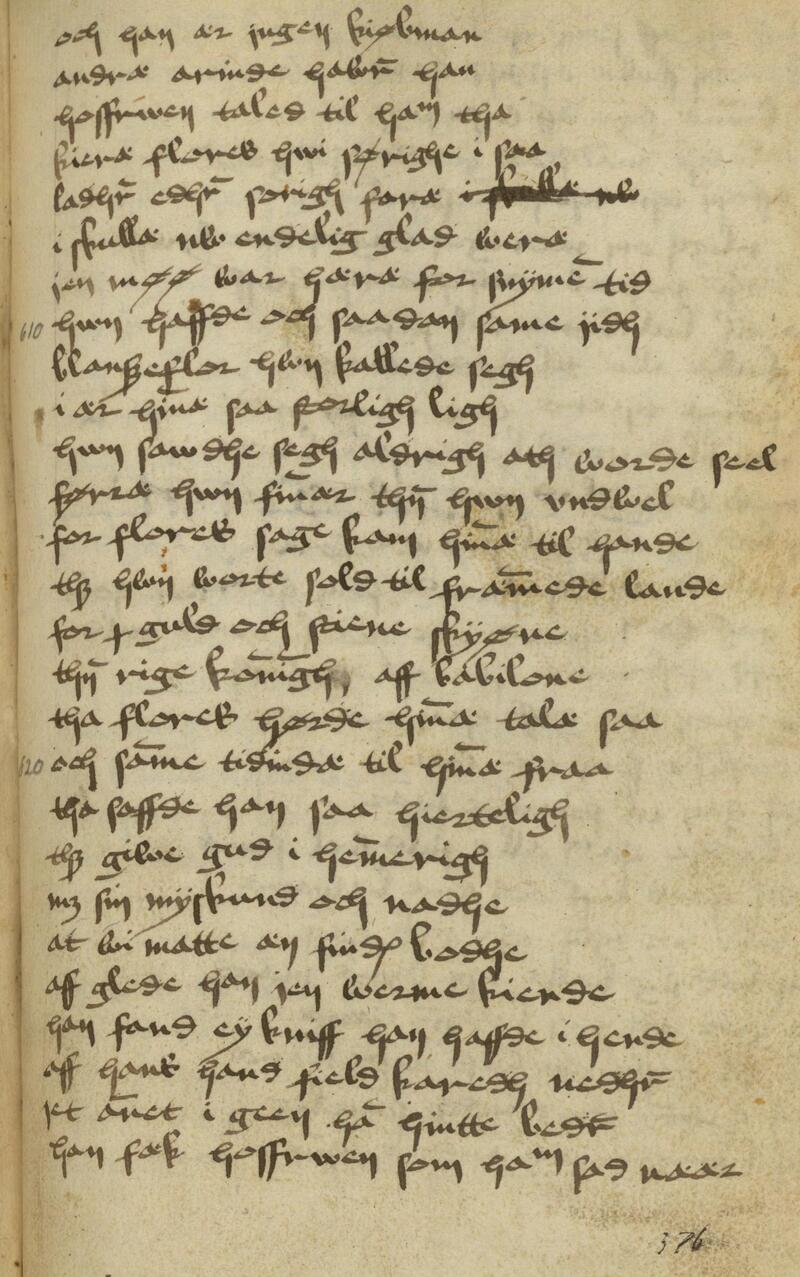 och han ær jngen kiøbman
andræ arinde hawr̄ han
hoffrwen taled til haᵐ tha
kieræ flores hwi sørighe i saa
ladhr̄ edhr̄ sorigh faræ i skullæ nw
i skullæ nw endelig glad weræ
jen møø war hæræ for snỳmē tid
610 hwn haffde och saadan same jidh
blanzeflor hwn kallede segh
i ær hīnæ saa storligh ligh
hwn sawdhe segh aldrigh ath worde seel
førræ hwn fīnær thn̄ hwn vndwel
for flores sage kam hīnæ til hande
thꝫ hwn worte sold til fram̄ede lande
for guld och stiene skỳøne
thn̄ rige kon̄īgh, aff babilone
tha flores hørde hīnæ talæ saa
620 och sam̄e tidindæ til hīnæ fraa
tha saffde han saa hierteligh
thꝫ giwe gud i hem̄erigh
mꝫ sin mỳskund och nadhe
at wi matte æn findꝭ bodhe
aff glede han jen werme kiende
han fand eỳ kniff han haffde i hende
aff hans hand field karedh nedhr̄
jet an̄et i geen hā hintte bedr̄
han fæk hoffrwen som haᵐ sad næær
376